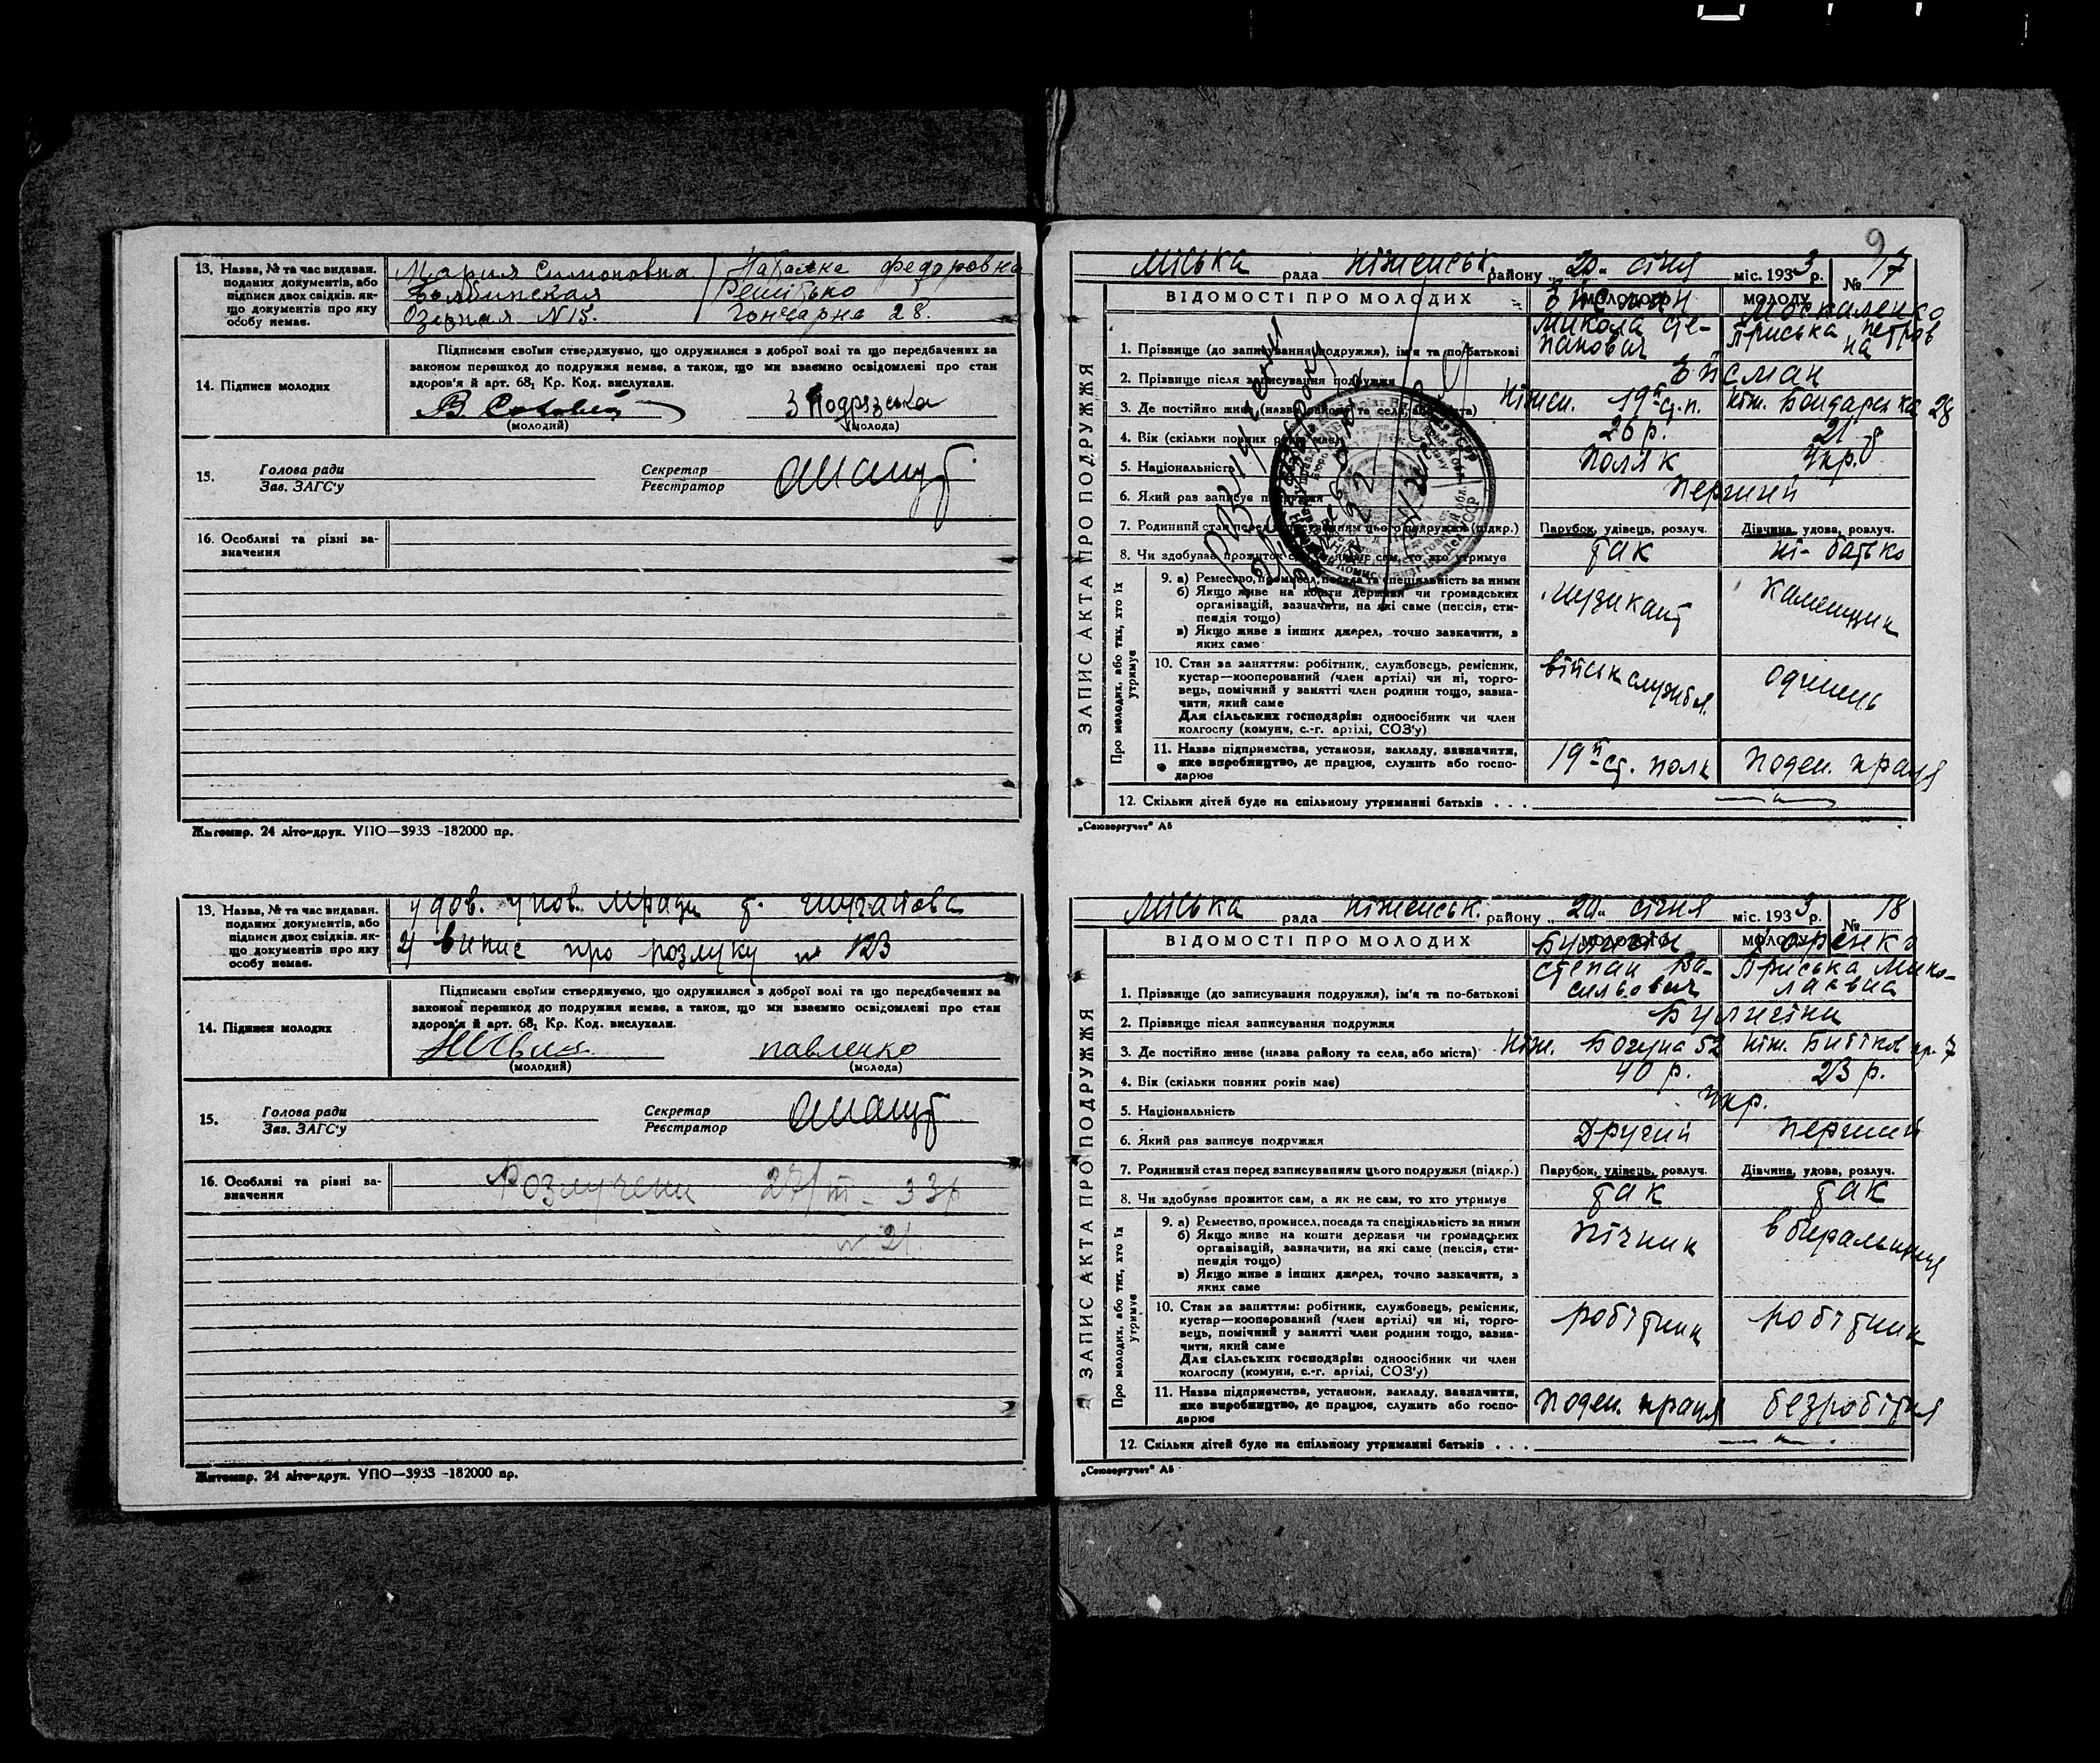 13. Назва, № та час видаван. поданих документів, або підписи двох свідків, якщо документів про яку особу немає.
Мария Симоновна
Озерная N 15.
Наталка Федоровна
Решітько
Гончарна 28.
14. Підписи молодих
Підписами своїми стверджуємо, що одружилися з доброї волі та що передбачених за
законом перешкод до подружжя немає, а також, що ми взаємно освідомлені про стан
здоров'я й арт. 68₁ Кр. Код. вислухали.
(молодий)
(молода)
15.
Голова ради
Зав. ЗАГС'у
Секретар
Реєстратор
16. Особливі та різні зазначення
Житомир. 24 літо-друк. УПО—3933 -182000 пр.
13. Назва, № та час видаван. поданих документів, або підписи двох свідків, якщо документів про яку особу немає.
2) Випис про розлуку №
14. Підписи молодих
Підписами своїми стверджуємо, що одружилися з доброї волі та що передбачених за
законом перешкод до подружжя немає, а також, що ми взаємно освідомлені про стан
здоров'я й арт. 68₁ Кр. Код. вислухали.
павленко
(молодий)
(молода)
15.
Голова ради
Зав. ЗАГС'у
Секретар
Реєстратор
16. Особливі та різні зазначення
Розлучени 27/III - 33р
№ 21.
Житомир. 24 літо-друк. УПО—3933 -182000 пр.
9
Міська рада Ніженськ. району „20„ січня міс. 1933 р. № 17
ЗАПИС АКТА ПРО ПОДРУЖЖЯ
ВІДОМОСТІ ПРО МОЛОДИХ
МОЛОДОГО
МОЛОДУ
1. Прізвище (до записування подружжя), ім'я та по-батькові
Ейсман
Микола Степанович
Москаленко
Приська Петровна
2. Прізвище після записування подружжя
Ейсман
3. Де постійно живе (назва району та села, або міста)
Ніжен. 19й ст. п.
Ніж. Бондаренка 28
4. Вік (скільки повних років має)
26 р.
21 р
5. Національність
Поляк
Укр.
6. Який раз записує подружжя
Перший
7. Родинний стан перед записуванням цього подружжя (підкр.)
Парубок, удівець, розлуч.
Дівчина, удова, розлуч.
8. Чи здобуває прожиток сам, а як не сам, то хто утримує
Так
ні- батько
Про молодих, або тих, хто їх утримує
9. а) Ремество, промисел, посада та спеціяльність за ними
б) Якщо живе на кошти держави чи громадських
організацій, зазначити, на які саме (пенсія, стипендія тощо)
в) Якщо живе з інших джерел, точно зазначити, з яких саме
музикант
Каменщик
10. Стан за заняттям: робітник, службовець, ремісник,
кустар—кооперований (член артілі) чи ні, торговець, помічний у занятті член родини тощо, зазначити, який саме
Для сільських господарів: одноосібник чи член
колгоспу (комуни, с.-г. артілі, СОЗ'у)
військслужбов.
Одинець
11. Назва підприємства, установи, закладу, зазначити,
яке виробництво, де працює, служить або господарює
19й ст. полк
Поден. праця
12. Скільки дітей буде на спільному утриманні батьків . . .
„Союзоргучет“ А5
Міська рада Ніженськ. району „20„ січня міс. 1933 р. № 18
ЗАПИС АКТА ПРО ПОДРУЖЖЯ
ВІДОМОСТІ ПРО МОЛОДИХ
МОЛОДОГО
МОЛОДУ
1. Прізвище (до записування подружжя), ім'я та по-батькові
Степан Васильович
Приська Миколаївна
2. Прізвище після записування подружжя
3. Де постійно живе (назва району та села, або міста)
Ніж. Богуна 52
4. Вік (скільки повних років має)
40 р.
23 р.
5. Національність
Укр.
6. Який раз записує подружжя
Другий
Перший
7. Родинний стан перед записуванням цього подружжя (підкр.)
Парубок, удівець, розлуч.
Дівчина, удова, розлуч.
8. Чи здобуває прожиток сам, а як не сам, то хто утримує
Так
Так
Про молодих, або тих, хто їх утримує
9. а) Ремество, промисел, посада та спеціяльність за ними
б) Якщо живе на кошти держави чи громадських
організацій, зазначити, на які саме (пенсія, стипендія тощо)
в) Якщо живе з інших джерел, точно зазначити, з яких саме
Пічник
вбиральниця
10. Стан за заняттям: робітник, службовець, ремісник,
кустар—кооперований (член артілі) чи ні, торговець, помічний у занятті член родини тощо, зазначити, який саме
Для сільських господарів: одноосібник чи член
колгоспу (комуни, с.-г. артілі, СОЗ'у)
робітник
робітник
11. Назва підприємства, установи, закладу, зазначити,
яке виробництво, де працює, служить або господарює
Поден. праця
безробітня
12. Скільки дітей буде на спільному утриманні батьків . . .
„Союзоргучет“ А5